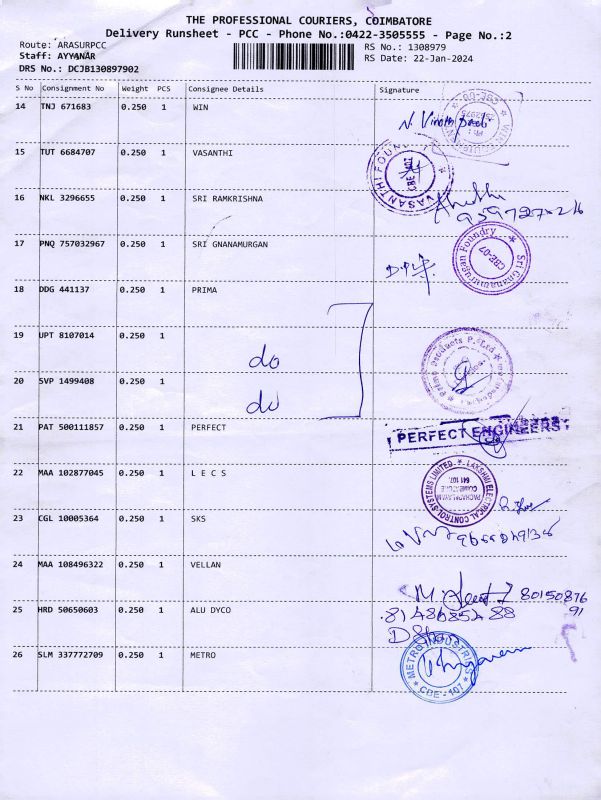 THE PROFESSIONAL COURIERS, COIMBATORE
Delivery Runsheet - PCC - Phone No.:0422-3505555 - Page No.:2
Route: ARASURPCC
RS No.: 1308979
Staff: AYYANAR
RS Date: 22-Jan-2024
DRS No.: DCJB130897902
S No Consignment No Weight PCS Consignee Details Signature
14 TNJ 671683 0.250 1 WIN
15 TUT 6684707 0.250 1 VASANTHI
VASANTHI FOUN
16 NKL 3296655 0.250 1 SRI RAMKRISHNA
17 PNQ 757032967 0.250 1 SRI GNANAMURGAN
Sri Gnanamurugan Foundry CBE-07
18 DDG 441137 0.250 1 PRIMA
19 UPT 8107014 0.250 1 do
Prime Products P. Ltd
20 SVP 1499408 0.250 1 do
21 PAT 500111857 0.250 1 PERFECT
PERFECT ENGINEERS
22 MAA 102877045 0.250 1 L E C S
LAKSHMI ELECTRICAL CONTROL SYSTEMS LIMITED
641 107.
23 CGL 10005364 0.250 1 SKS
24 MAA 108496322 0.250 1 VELLAN
80150876
91
25 HRD 50650603 0.250 1 ALU DYCO
26 SLM 337772709 0.250 1 METRO
METRO INDUSTRIES CBE-107